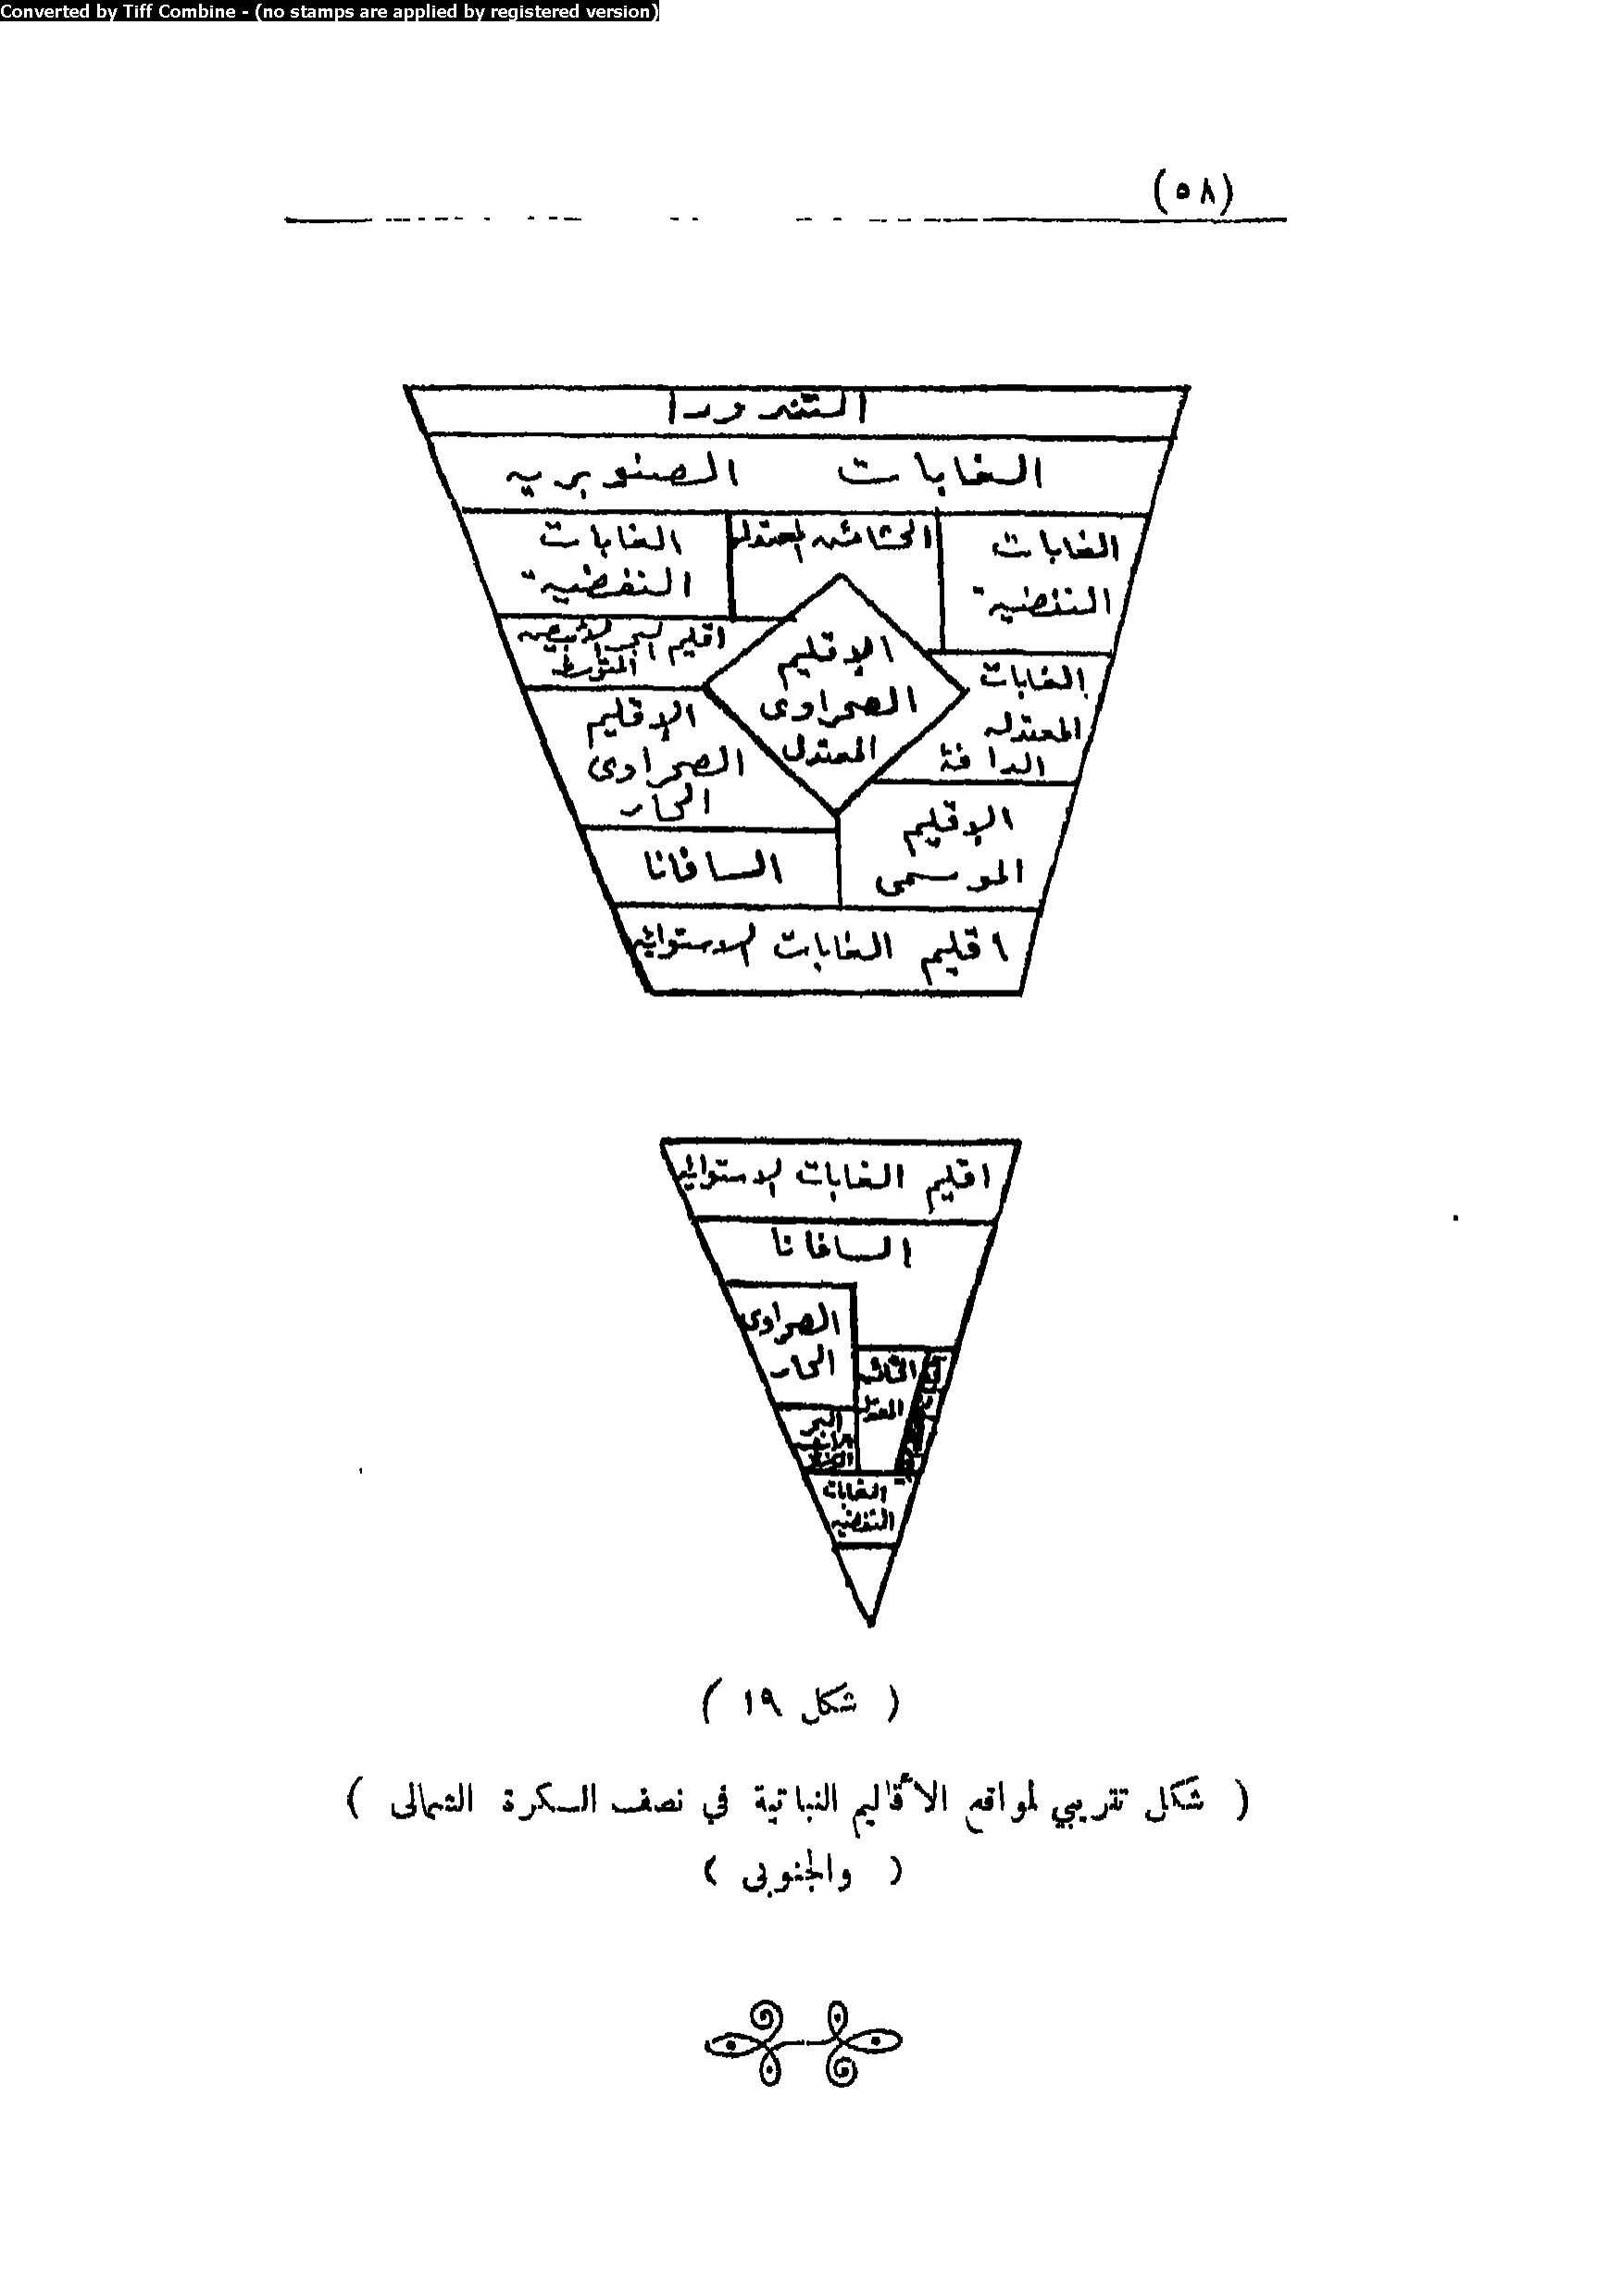 Converted by Tiff Combine - (no stamps are applied by registered version)
(٥٨)
التندورا
الغابات الصنوبريه
الغابات
النفضية
الحشائش المعتدله
الغابات
النفضية
اقليم البحر الأبيض
المتوسط
الإقليم
الصحراوى
المعتدل
الغابات
المعتدله
الدافئة
الإقليم
الصحراوى
الحار
الإقليم
الموسمى
السافانا
اقليم الغابات الاستوائيه
اقليم الغابات الاستوائيه
السافانا
الصحراوى
الحار
الحشائش
المعتدله
البحر
الغابات
النفضيه
( شكل ١٩ )
( شكل تقريبي لمواقع الأقاليم النباتية في نصف السكرة الشمالى )
( والجنوبى )